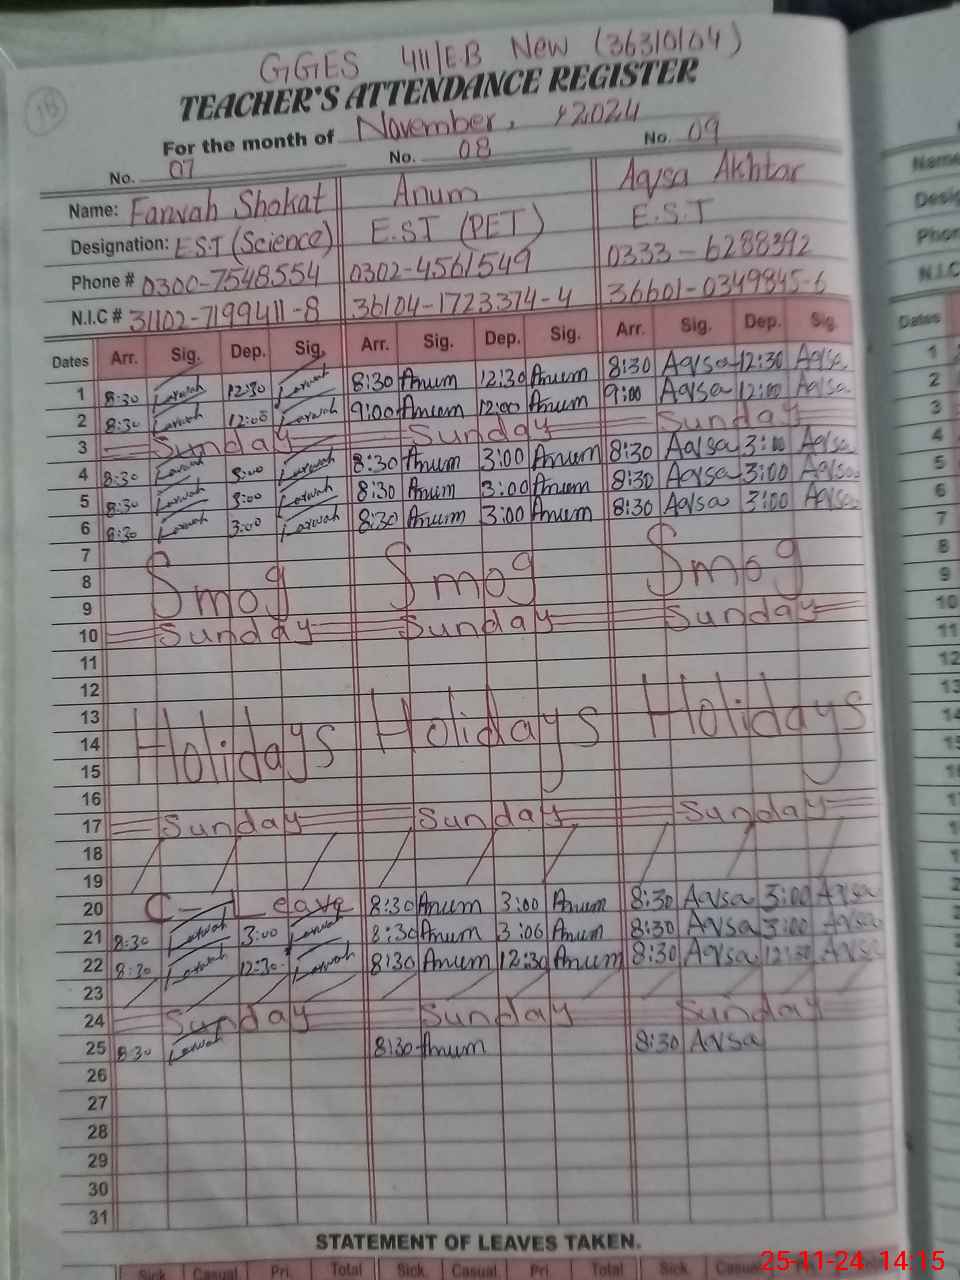 1B
GGES 411/EB New (36310104)
TEACHER'S ATTENDANCE REGISTER
For the month of November, 2024
No. 07 No. 08 No. 09
Name: Farwah Shokat Anum Aqsa Akhtar
Designation: E.S.T (Science) E.S.T (PET) E.S.T
Phone # 0300-7548554 0302-4561549 0333-6288392
N.I.C # 31102-7199411-8 36104-1723374-4 36601-0349845-6
Dates Arr. Sig. Dep. Sig. Arr. Sig. Dep. Sig. Arr. Sig. Dep. Sig.
1 8:30 Farwah 12:30 Farwah 8:30 Anum 12:30 Anum 8:30 Aqsa 12:30 Aqsa
2 8:30 Farwah 12:00 Farwah 9:00 Anum 12:00 Anum 9:00 Aqsa 12:00 Aqsa
3 Sunday Sunday Sunday
4 8:30 Farwah 3:00 Farwah 8:30 Anum 3:00 Anum 8:30 Aqsa 3:00 Aqsa
5 8:30 Farwah 3:00 Farwah 8:30 Anum 3:00 Anum 8:30 Aqsa 3:00 Aqsa
6 8:30 Farwah 3:00 Farwah 8:30 Anum 3:00 Anum 8:30 Aqsa 3:00 Aqsa
7
8 Smog Smog Smog
9
10 Sunday Sunday Sunday
11
12
13
14 Holidays Holidays Holidays
15
16
17 Sunday Sunday Sunday
18
19
20 C-Leave 8:30 Anum 3:00 Anum 8:30 Aqsa 3:00 Aqsa
21 8:30 Farwah 3:00 Farwah 8:30 Anum 3:00 Anum 8:30 Aqsa 3:00 Aqsa
22 8:30 Farwah 12:30 Farwah 8:30 Anum 12:30 Anum 8:30 Aqsa 12:30 Aqsa
23
24 Sunday Sunday Sunday
25 8:30 Farwah 8:30 Anum 8:30 Aqsa
26
27
28
29
30
31
STATEMENT OF LEAVES TAKEN.
Sick Casual Pri. Total Sick. Casual Pri. Total Sick.
25-11-24 14:15